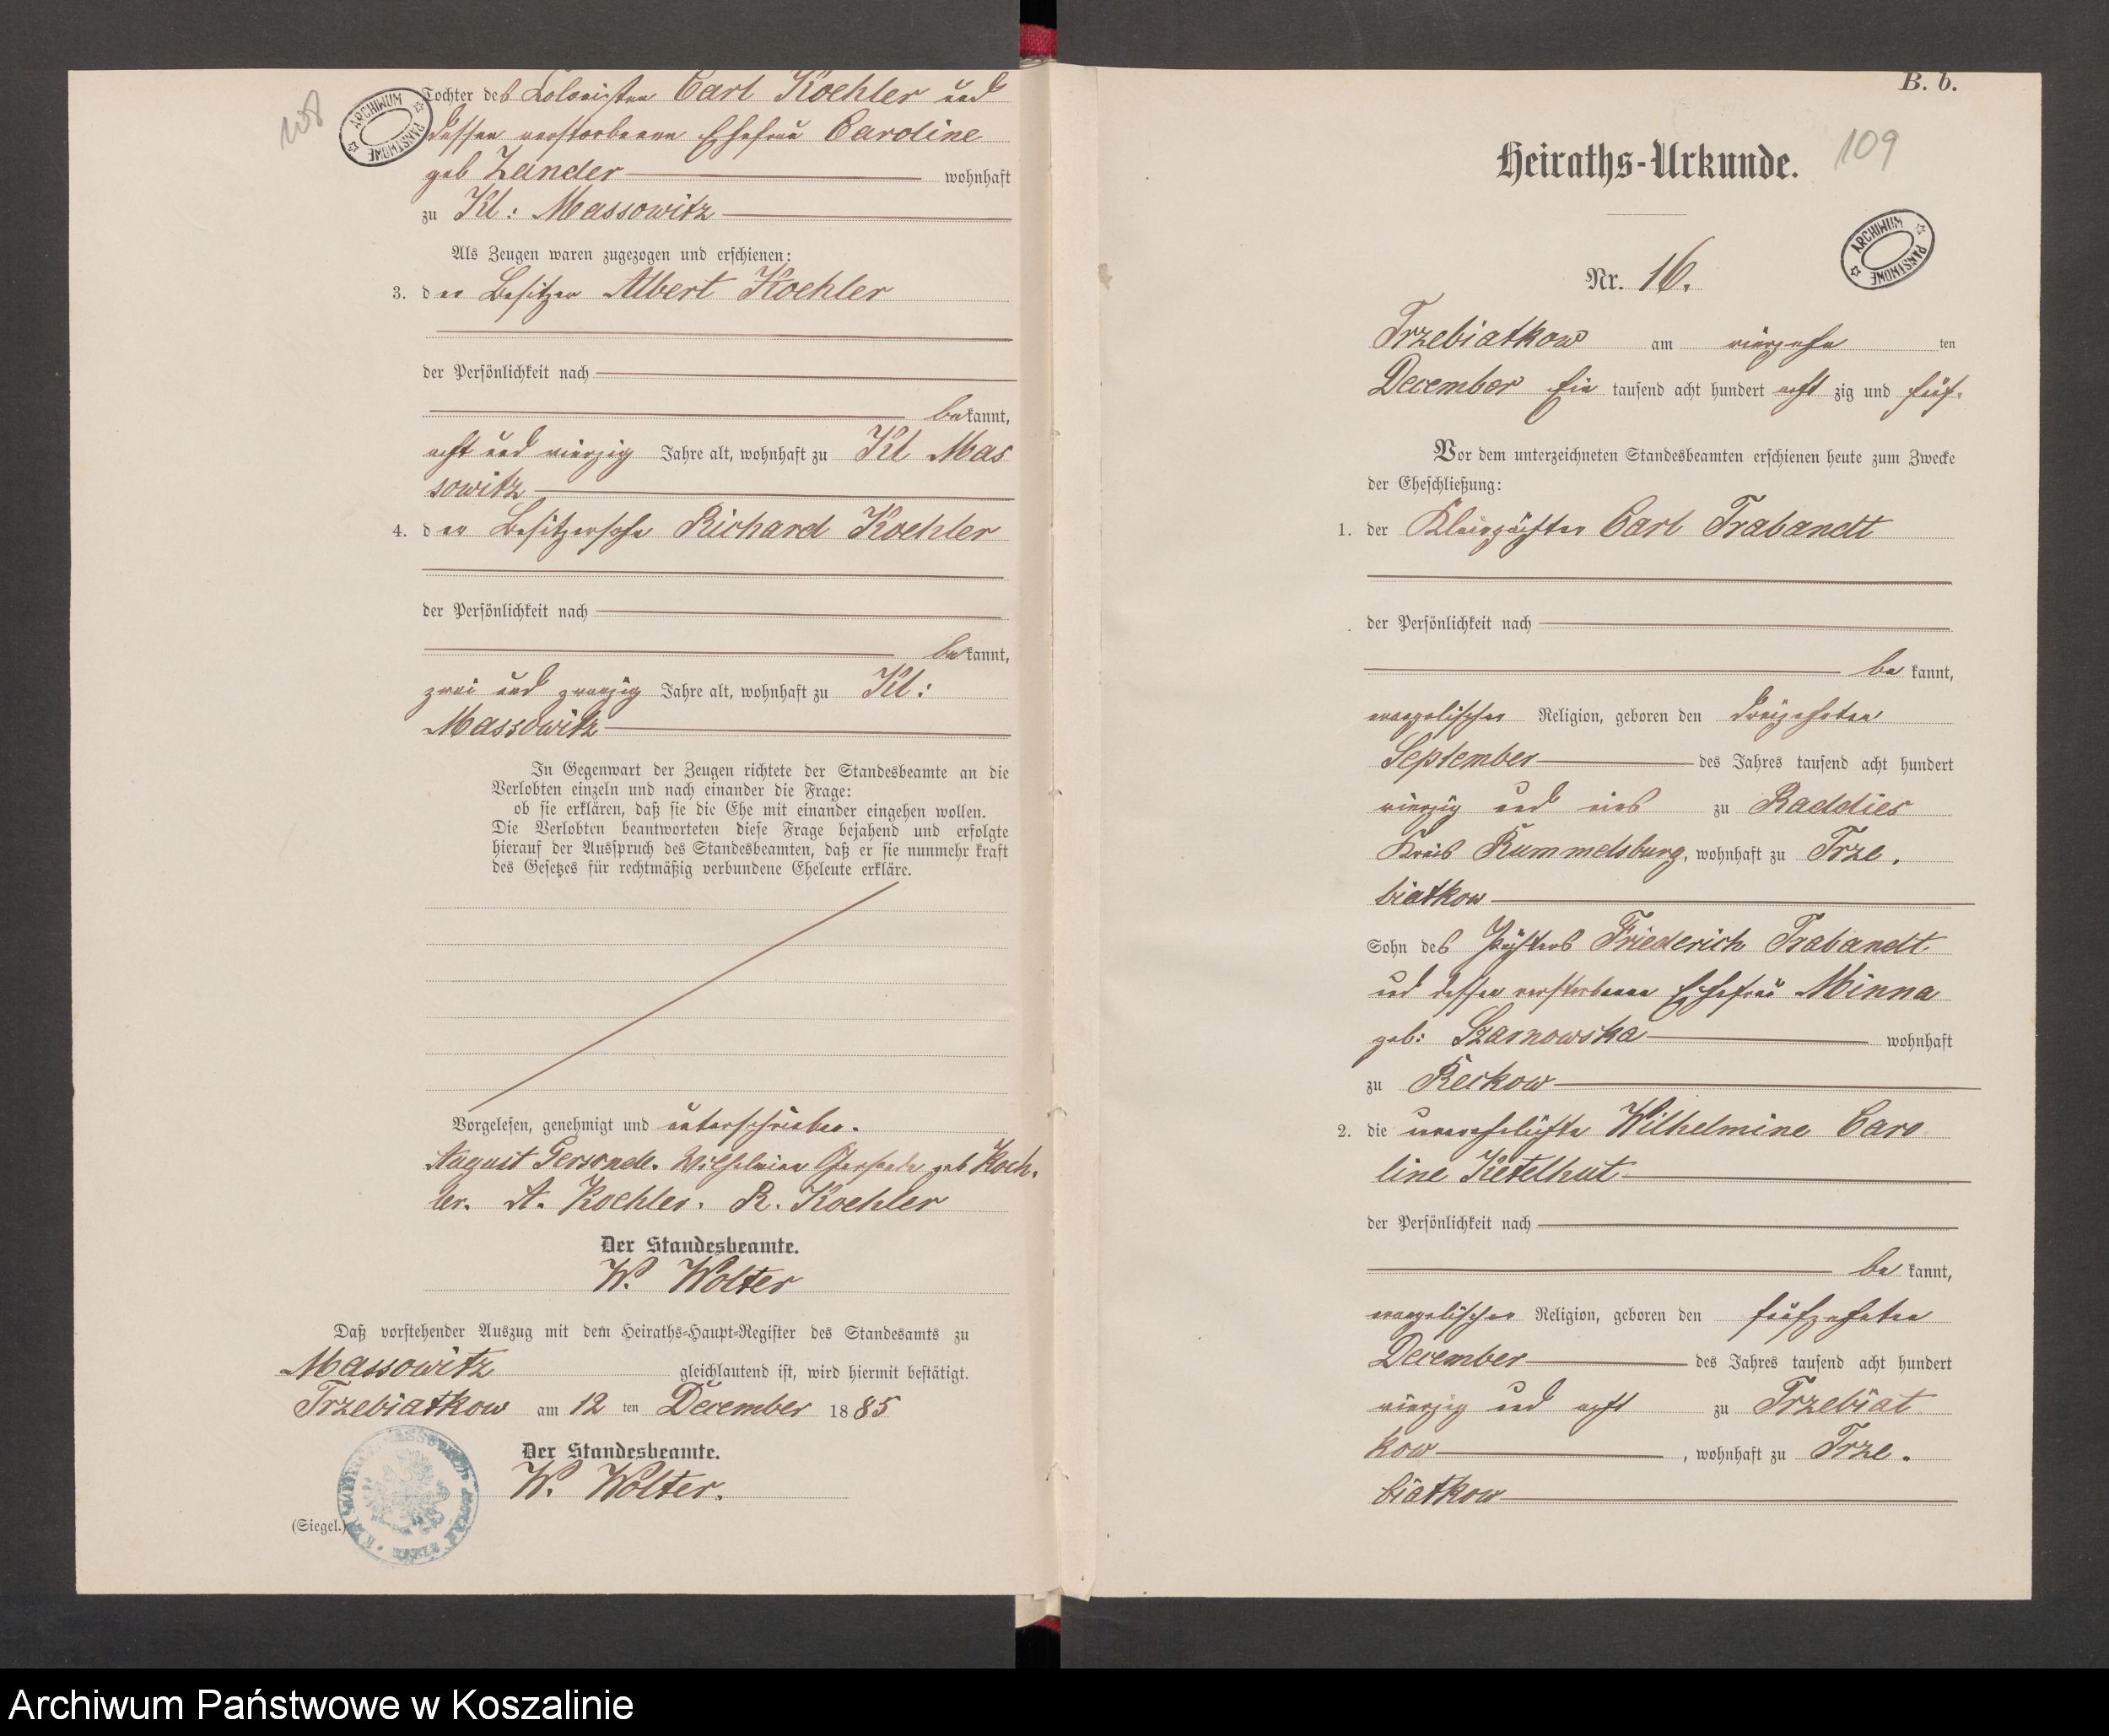 108
ARCHIWUM PAŃSTWOWE
Tochter des Kolonisten Carl Koehler und
dessen verstorbenen Ehefrau Caroline
geb Zander wohnhaft
zu Kl: Massowitz
Als Zeugen waren zugezogen und erschienen:
3. der Besitzer Albert Koehler
der Persönlichkeit nach
bekannt,
acht und vierzig Jahre alt, wohnhaft zu Kl Mas
sowitz
4. der Besitzersohn Richard Koehler
der Persönlichkeit nach
bekannt,
zwei und zwanzig Jahre alt, wohnhaft zu Kl:
Massowitz
In Gegenwart der Zeugen richtete der Standesbeamte an die
Verlobten einzeln und nach einander die Frage:
ob sie erklären, daß sie die Ehe mit einander eingehen wollen.
Die Verlobten beantworteten diese Frage bejahend und erfolgte
hierauf der Ausspruch des Standesbeamten, daß er sie nunmehr kraft
des Gesetzes für rechtmäßig verbundene Eheleute erkläre.
Vorgelesen, genehmigt und unterschrieben.
August Gersonde. Wilhelmine Gersonde geb Koeh.
ler. A. Koehler. R. Koehler
Der Standesbeamte.
W. Wolter
Daß vorstehender Auszug mit dem Heiraths-Haupt-Register des Standesamts zu
Massowitz gleichlautend ist, wird hiermit bestätigt.
Trzebiatkow am 12 ten December 1885
Der Standesbeamte.
W. Wolter.
(Siegel.)
B. b.
109
Heiraths-Urkunde.
ARCHIWUM PAŃSTWOWE
Nr. 16.
Trzebiatkow am vierzehn ten
December Ein tausend acht hundert acht zig und fünf.
Vor dem unterzeichneten Standesbeamten erschienen heute zum Zwecke
der Eheschließung:
1. der Kleinpächter Carl Trabandt
der Persönlichkeit nach
be kannt,
evangelischer Religion, geboren den dreizehnten
September des Jahres tausend acht hundert
vierzig und eins zu Raddies
Kreis Rummelsburg, wohnhaft zu Trze.
biatkow
Sohn des Pächters Friederich Trabandt
und dessen verstorbenen Ehefrau Minna
geb: Szarnowska wohnhaft
zu Reckow
2. die unverehelichte Wilhelmine Caro
line Ketelhut
der Persönlichkeit nach
be kannt,
evangelischer Religion, geboren den fünfzehnten
December des Jahres tausend acht hundert
vierzig und acht zu Trzebiat
kow, wohnhaft zu Trze.
biatkow
Archiwum Państwowe w Koszalinie